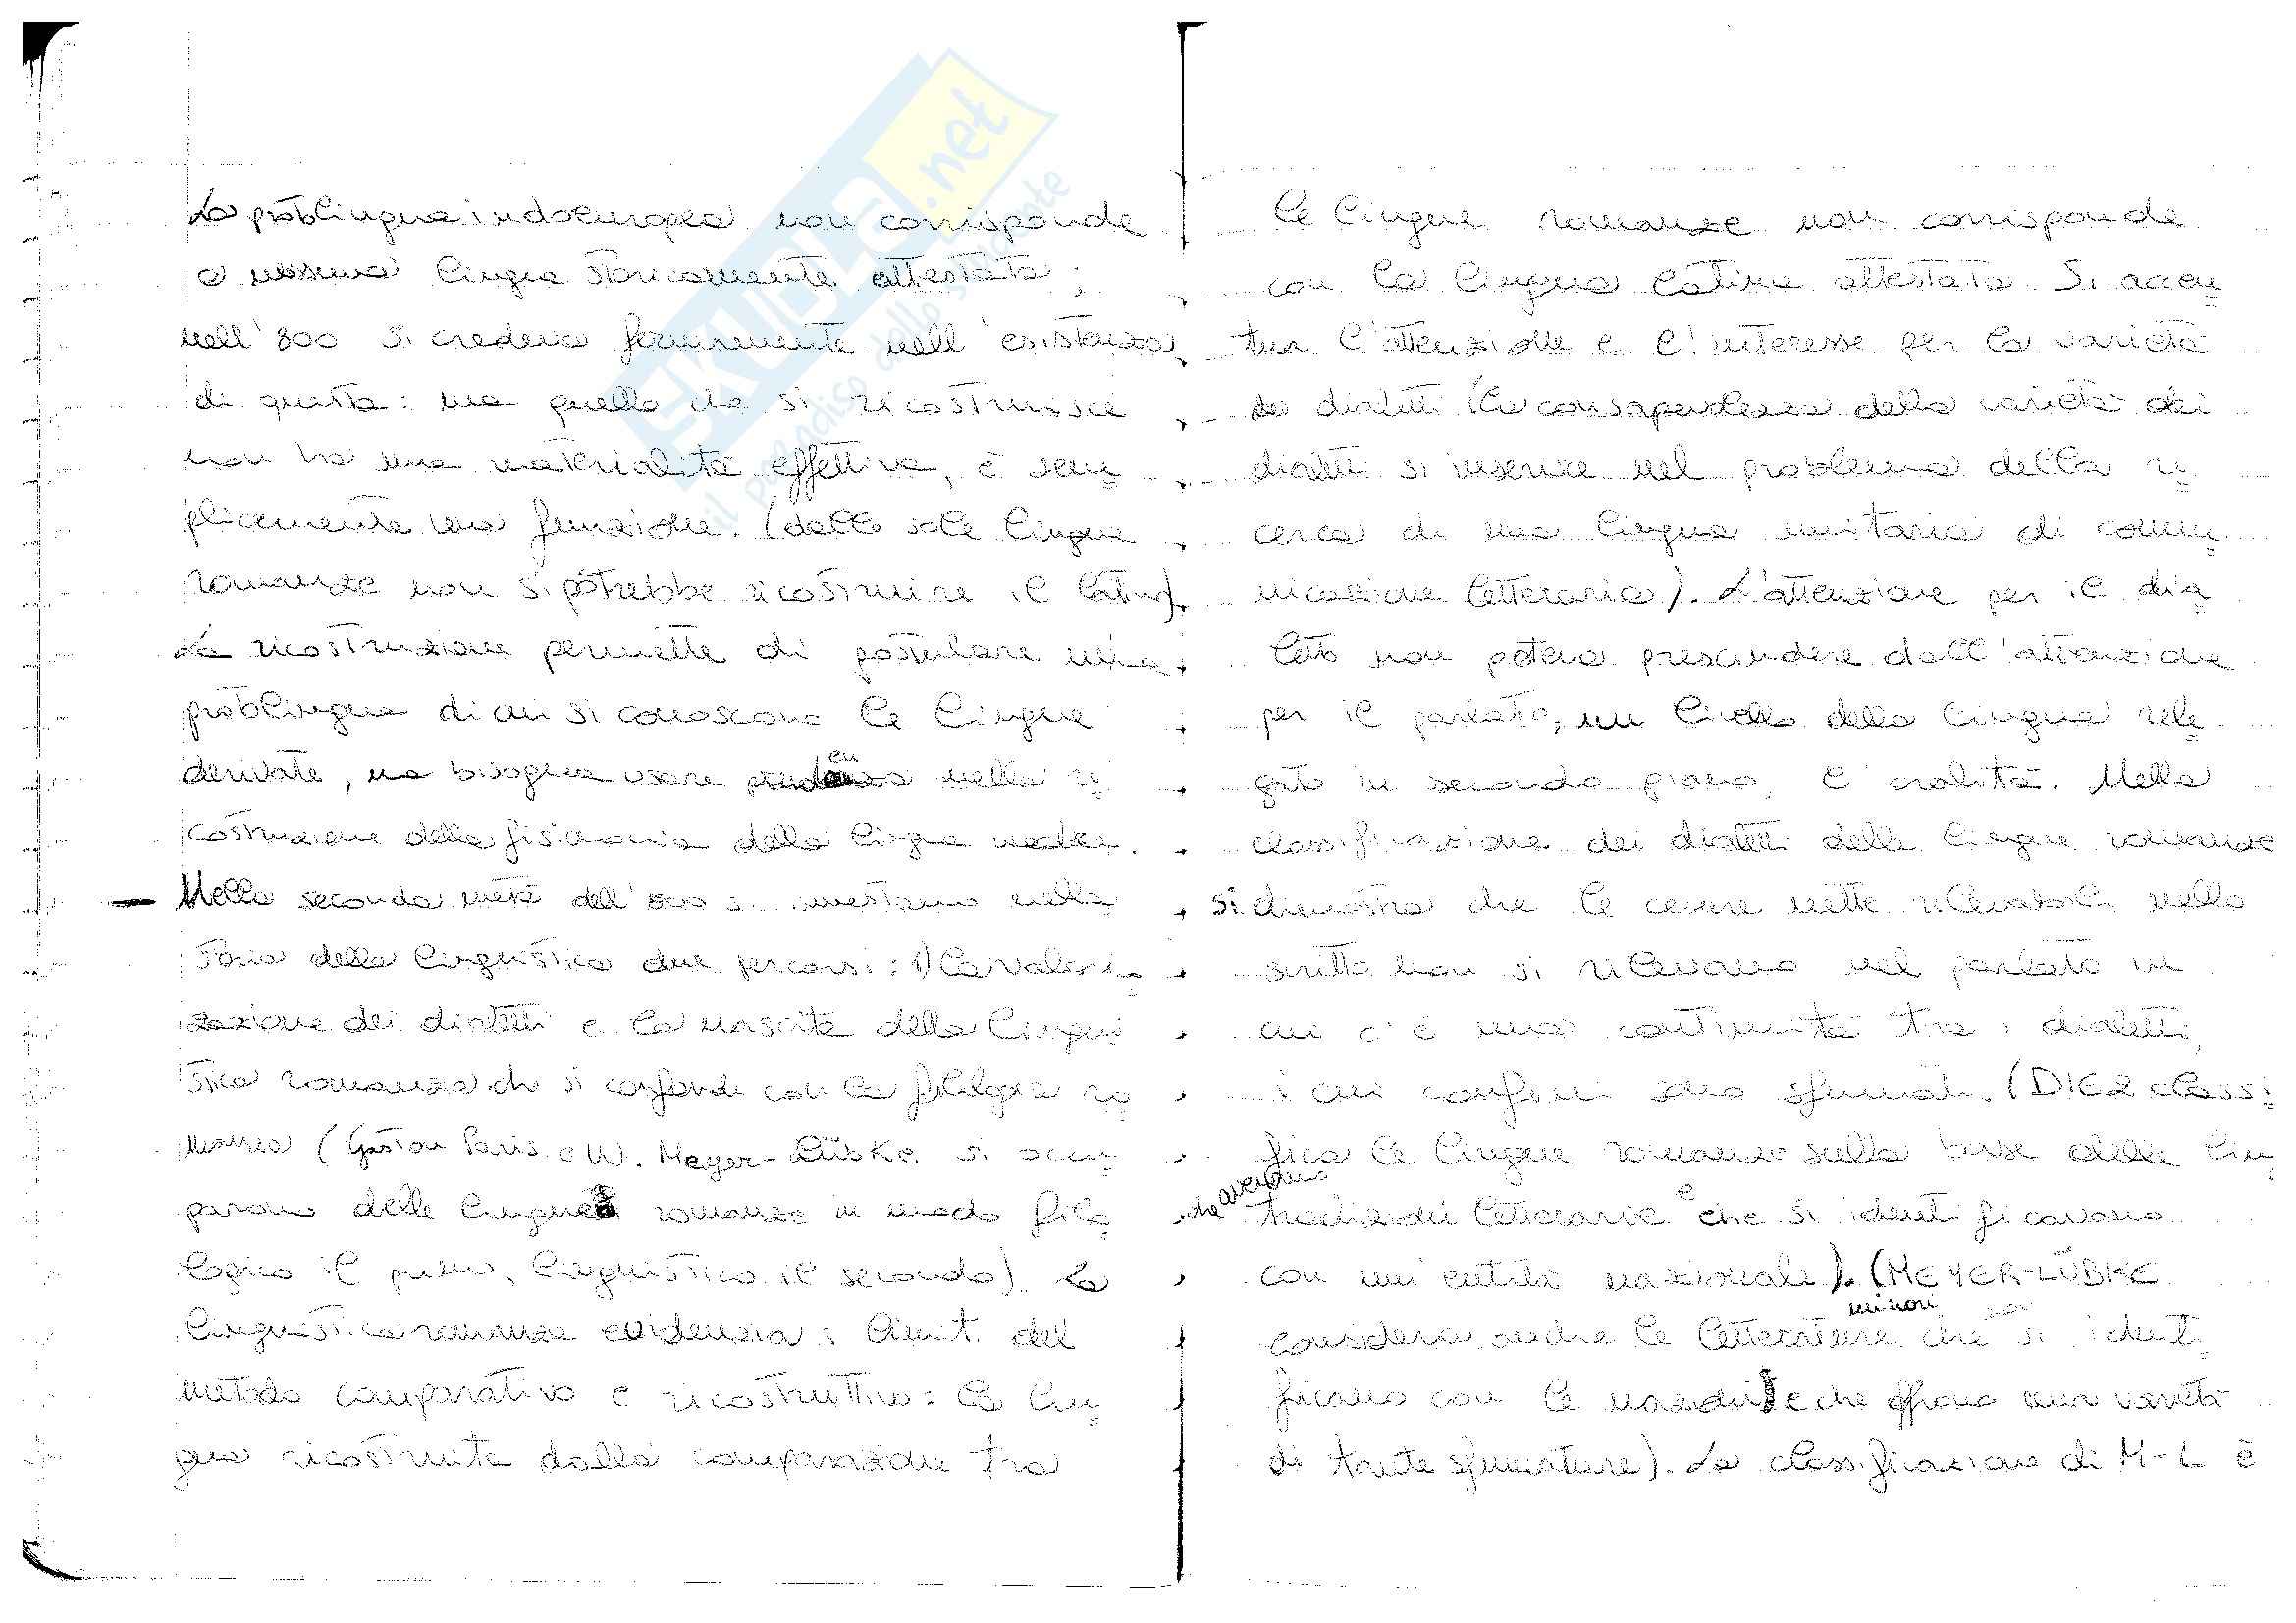 La protolingua indoeuropea non corrisponde
a nessuna lingua storicamente attestata;
nell'800 si credeva fermamente nell'esistenza
di questa: ma quello che si ricostruisce
non ha una materialità effettiva, è sem
plicemente una funzione. (dalle sole lingue
romanze non si potrebbe ricostruire il latino).
La ricostruzione permette di postulare una
protolingua di cui si conoscono le lingue
derivate, ma bisogna usare prudenza nella ri
costruzione della fisionomia della lingua madre.
– Nella seconda metà dell'800 si innestano nella
storia della linguistica due percorsi: 1) la valoriz
zazione dei dialetti e la nascita della lingui
stica romanza che si confonde con la filologia ro
manza (Gaston Paris e W. Meyer-Lübke si occu
parono delle lingue romanze in modo filo
logico il primo, linguistico il secondo). La
linguistica romanza evidenzia i limiti del
metodo comparativo e ricostruttivo: la lin
gua ricostruita dalla comparazione tra
le lingue romanze non corrisponde
con la lingua latina attestata. Si accen
tua l'attenzione e l'interesse per la varietà
dei dialetti (la consapevolezza della varietà dei
dialetti si inserisce nel problema della ri
cerca di una lingua unitaria di comu
nicazione letteraria). L'attenzione per il dia
letto non poteva prescindere dall'attenzione
per il parlato, un livello della lingua rele
gato in secondo piano, l'oralità. Nella
classificazione dei dialetti delle lingue romanze
si dimostra che le cesure nette rilevabili nello
scritto non si rilevano nel parlato in
cui c'è una continuità tra i dialetti,
i cui confini sono sfumati. (DIEZ classi
fica le lingue romanze sulla base delle lin
che avevano
tradizioni letterarie e che si identificavano
con un'entità nazionale). (MEYER-LÜBKE
minori
considera anche le letterature che si identi
ficano con le nazioni e che offrono una varietà
di tante sfumature). La classificazione di M-L è
SKUOLA.net
il paradiso dello studente